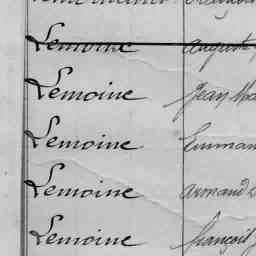 Lemoine August
Lemoine Jean
Lemoine Emman
Lemoine Armand
Lemoine François